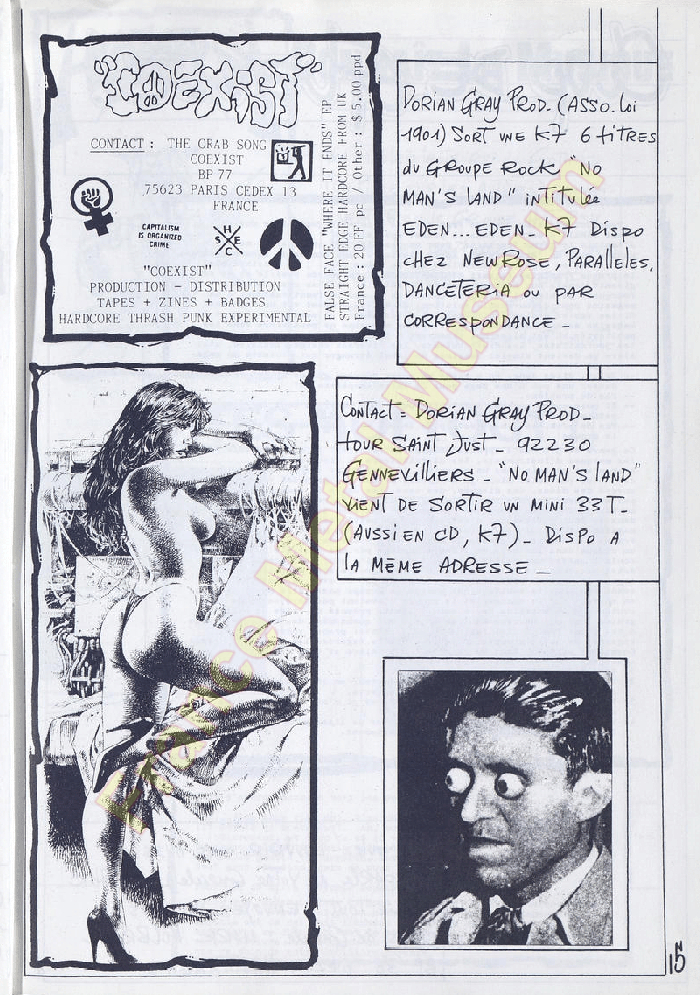 "COEXIST"
CONTACT : THE CRAB SONG
COEXIST
BP 77
75623 PARIS CEDEX 13
FRANCE
CAPITALISM
IS ORGANIZED
CRIME
H S E C
"COEXIST"
PRODUCTION - DISTRIBUTION
TAPES + ZINES + BADGES
HARDCORE THRASH PUNK EXPERIMENTAL
FALSE FACE "WHERE IT ENDS" EP
STRAIGHT EDGE HARDCORE FROM UK
France : 20 FF pc / Other : $ 5.00 ppd
DORIAN GRAY PROD. (ASSO. Loi
1901) SORT UNE K7 6 titres
du GROUPE ROCK "NO
MAN'S LAND" intitulée
EDEN... EDEN_ K7 Dispo
CHEZ NEW ROSE, PARALLELES,
DANCETERIA OU PAR
CORRESPONDANCE _
Contact = DORIAN GRAY PROD_
tour SAINT JUST _ 92230
GENNEVILLIERS _ "NO MAN'S LAND"
VIENT DE SORTIR UN MINI 33 T_
(AUSSI EN CD, K7) _ DISPO A
LA MÊME ADRESSE _
France Metal Museum
15